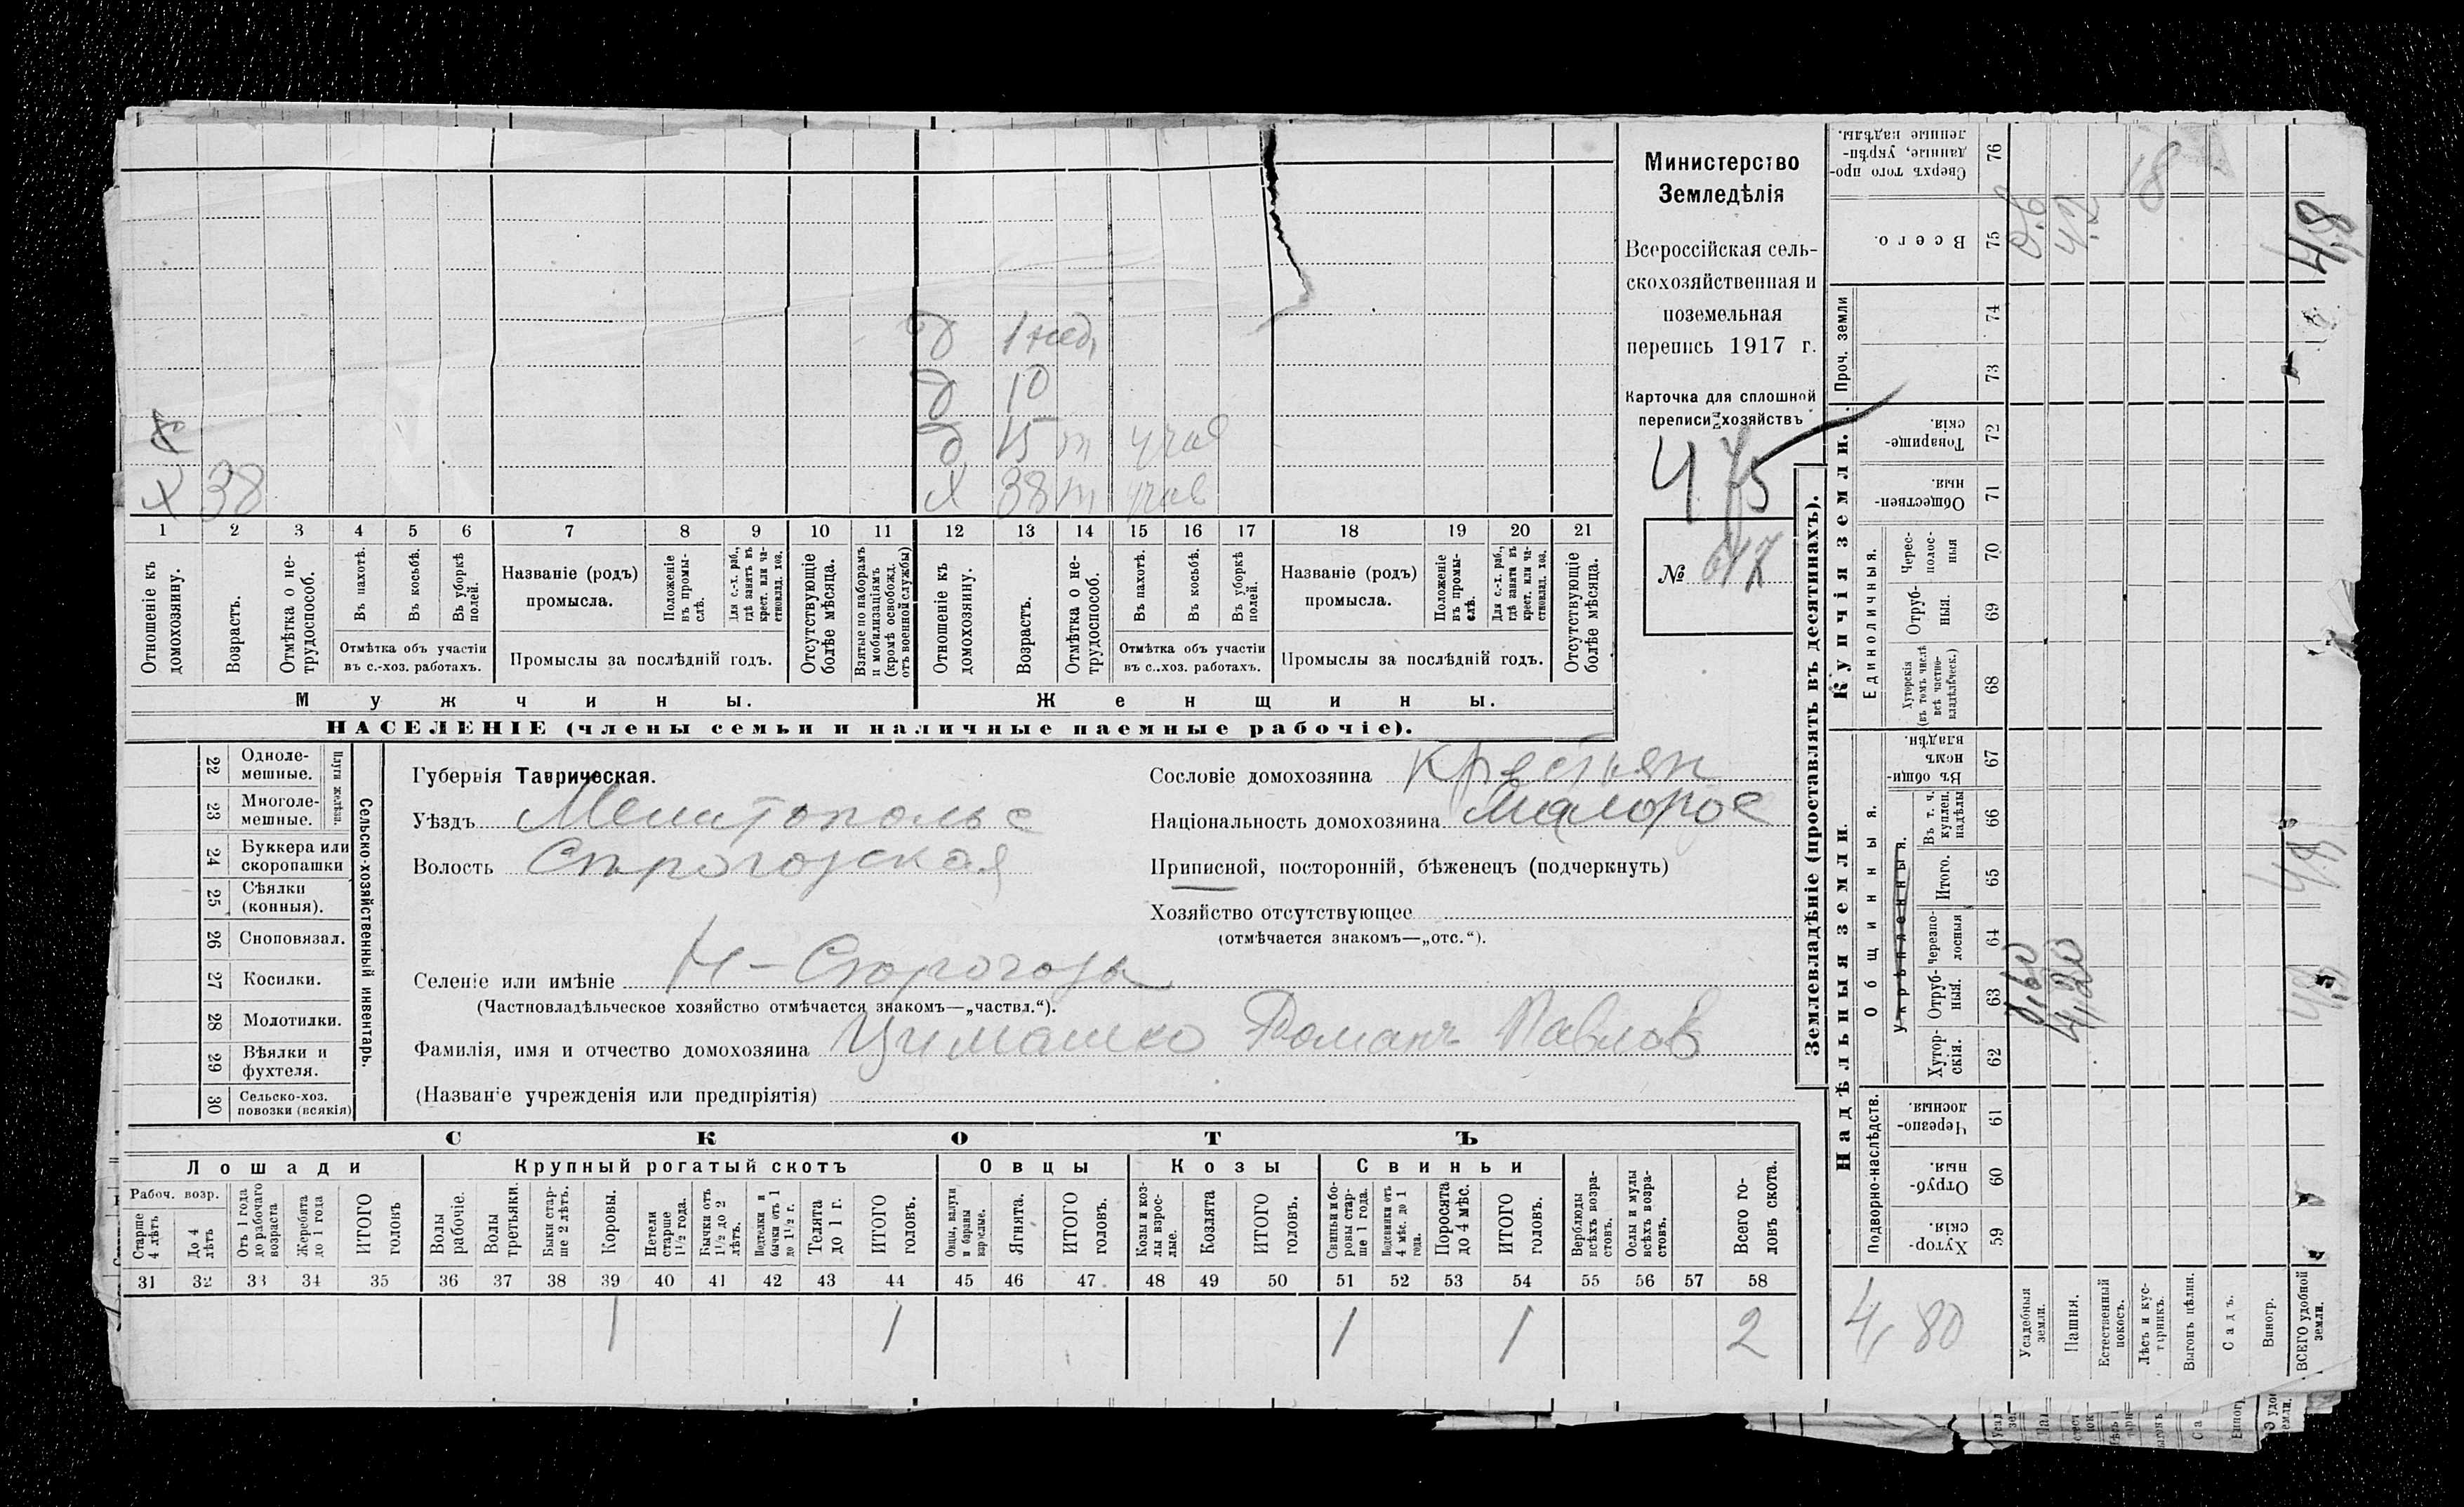 Министерство
Земледѣлія
Всероссійская сель-
скохозяйственная и
поземельная
перепись 1917 г.
Карточка для сплошной
переписи хозяйствъ
475
№ 617
д 1 нед.
д 10
д 15 уча
х
х 38 х 38 учав
1 2 3 4 5 6 7 8 9 10 11 12 13 14 15 16 17 18 19 20 21
Отношеніе къ домохозяину.
Возрастъ.
Отмѣтка о не-трудоспособ.
Въ пахотѣ.
Въ косьбѣ.
Въ уборкѣ полей.
Отмѣтка объ участіи въ с.-хоз. работахъ.
Названіе (родъ) промысла.
Положеніе въ промы-слѣ.
Для с.-х. раб., гдѣ занятъ въ крест. или ча-стновлад. хоз.
Промыслы за послѣдній годъ.
Отсутствующіе болѣе мѣсяца.
Взятые по наборамъ и мобилизаціямъ (кромѣ освобожд. отъ военной службы)
Отношеніе къ домохозяину.
Возрастъ.
Отмѣтка о не-трудоспособ.
Въ пахотѣ.
Въ косьбѣ.
Въ уборкѣ полей.
Отмѣтка объ участіи въ с..хоз. работахъ.
Названіе (родъ) промысла.
Положеніе въ промы-слѣ.
Для с.-х. раб., гдѣ занята въ крест. или ча-стновлад. хоз.
Промыслы за послѣдній годъ.
Отсутствующіе болѣе мѣсяца.
Мужчины. Женщины.
НАСЕЛЕНІЕ (члены семьи и наличные наемные рабочіе).
22 Одноле-мешные.
23 Многоле-мешные.
Плуги желѣзн.
24 Буккера или скоропашки
25 Сѣялки (конныя).
26 Сноповязал.
27 Косилки.
28 Молотилки.
29 Вѣялки и фухтеля.
30 Сельско-хоз. повозки (всякія)
Сельско-хозяйственный инвентарь.
Губернія Таврическая.
Уѣздъ Мелитопольс
Волость Сѣрогозская
Селеніе или имѣніе Н-Сѣрогозы
(Частновладѣльческое хозяйство отмѣчается знакомъ—„частвл.“).
Фамилія, имя и отчество домохозяина Цимашко Романъ Павлов
(Названіе учрежденія или предпріятія)
Сословіе домохозяина Крестьян
Національность домохозяина Малорос
Приписной, посторонній, бѣженецъ (подчеркнуть)
Хозяйство отсутствующее
(отмѣчается знакомъ—„отс.“).
СКОТЪ
Лошади Крупный рогатый скотъ Овцы Козы Свиньи
Рабоч. возр.
Старше 4 лѣтъ
До 4 лѣтъ
Отъ 1 года до рабочаго возраста
Жеребята до 1 года
ИТОГО головъ
Волы рабочіе.
Волы третьяки.
Быки стар-ше 2 лѣтъ.
Коровы.
Нетели старше 1½ года.
Бычки отъ 1½ до 2 лѣтъ.
Подтелки и бычки отъ 1 до 1½ г.
Телята до 1 г.
ИТОГО головъ.
Овцы, валухи и бараны взрослые.
Ягнята.
ИТОГО головъ.
Козы и коз-лы взрос-лые.
Козлята
ИТОГО головъ.
Свиньи и бо-ровы стар-ше 1 года.
Подсвинки отъ 4 мѣс. до 1 года.
Поросята до 4 мѣс.
ИТОГО головъ.
Верблюды всѣхъ возра-стовъ.
Ослы и мулы всѣхъ возра-стовъ.
Всего го-ловъ скота.
31 32 33 34 35 36 37 38 39 40 41 42 43 44 45 46 47 48 49 50 51 52 53 54 55 56 57 58
1 1 1 1 2
Землевладѣніе (проставлять въ десятинахъ).
Надѣльныя земли. Купчія земли. Проч. земли
Подворно-наслѣдств.
Общинныя.
Укрѣпленныя.
Единоличныя.
59 Хутор-скія.
60 Отруб-ныя.
61 Черезпо-лосныя.
62 Хутор-скія.
63 Отруб-ныя.
64 Черезпо-лосныя
65 Итого.
66 Въ т. ч. куплен. надѣлы
67 Въ общи-номъ владѣн.
68 Хуторскія (въ томъ числѣ всѣ частно-владѣльческ.)
69 Отруб-ныя.
70 Черес-полос-ныя
71 Обществен-ныя.
72 Товарище-скія.
73
74
75 Всего.
76 Сверхъ того про-данные, укрѣп-ленные надѣлы.
4,80
Усадебныя земли. 0,60 0,6
Пашня. 4,20 4,2
Естественный покосъ.
Лѣсъ и кус-тарникъ. 18
Выгонъ цѣлин.
Садъ.
Виногр.
ВСЕГО удобной земли. 4,8 4,8 4,8